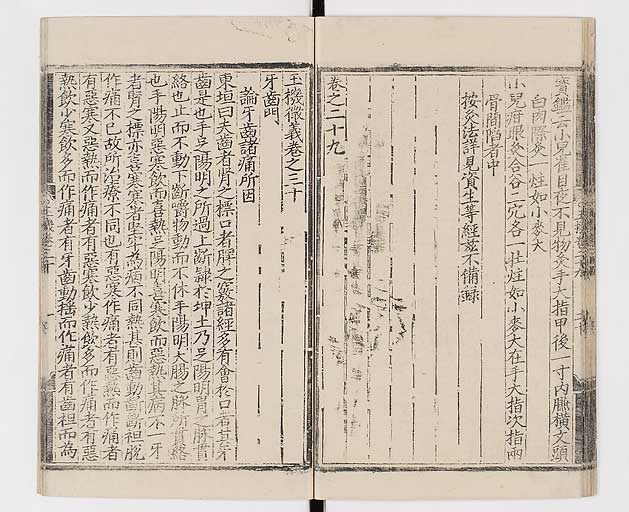 寶鑑云小兒雀目夜不見物灸手大指甲後一寸內臁橫文頭
白肉際灸一炷如小麥大
小兒疳眼灸合谷二穴各一壯炷如小麥大在手大指次指兩
骨間陷者中
按灸法詳見資生等經玆不備錄
卷之二十九
玉機微義卷之三十
牙齒門
論牙齒諸痛所因
東垣曰夫齒者腎之標口者脾之竅諸經多有會於口者其牙
齒是也手足陽明之所過上齗隸於坤土乃足陽明胃之脉貫
絡也止而不動下齗嚼物動而不休手陽明大腸之脉所貫絡
也手陽明惡寒飲而喜熱足陽明喜寒飲而惡熱其病不一牙
者腎之標亦喜寒寒者堅牢爲病不同熱甚則齒動齗斷袒脫
作痛不已故所治療不同也有惡寒作痛者有惡熱而作痛者
有惡寒又惡熱而作痛者有惡寒飲少熱飲多而作痛者有惡
熱飲少寒飲多而作痛者有牙齒動搖而作痛者有齒袒而爲